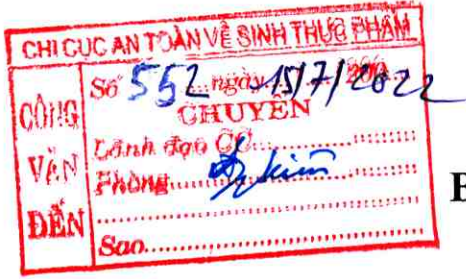 CHI CỤC AN TOÀN VỆ SINH THỰC PHẨM
CÔNG VĂN ĐẾN
Số 552 ngày 15/7/2022
CHUYỂN
Lãnh đạo CC
Phòng
Sao